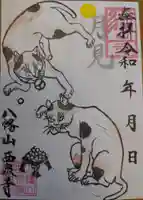 奉拝令和 年 月 日
月見
八幡山 西照寺